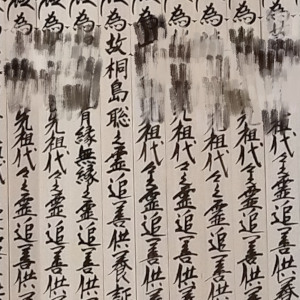 為 先祖代々之霊追善供養
為 先祖代々之霊追善供
為 先祖代々之霊追善供
為 先祖代々之霊追善供
為 祖代々之霊追善供
為故桐島聡之霊追善供養証
為 有縁無縁之霊追善供
為 先祖代々之霊追善供
為 先祖代々之霊追善供